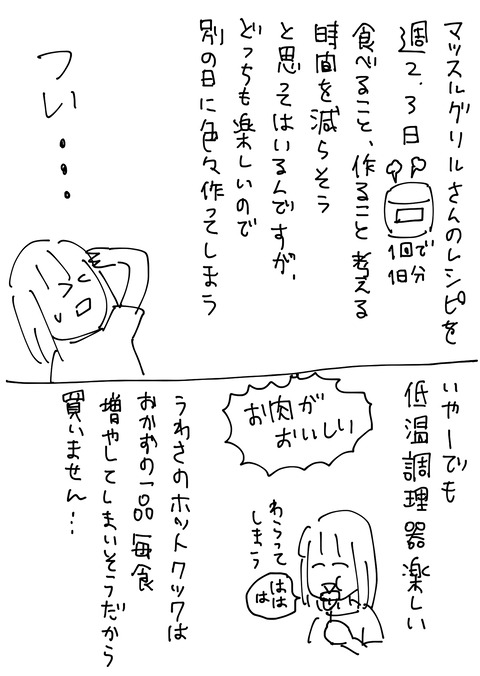 マッスルグリルさんのレシピを
週2.3日
1回で
1日分
食べること、作ること考える
時間を減らそう
と思ってはいるんですが、
どっちも楽しいので
別の日に色々作ってしまう
つい・・・
いやーでも
低温調理器楽しい
お肉が
おいしい
わらって
しまう
はは
は
うわさのホットクックは
おかずの一品毎食
増やしてしまいそうだから
買いません…